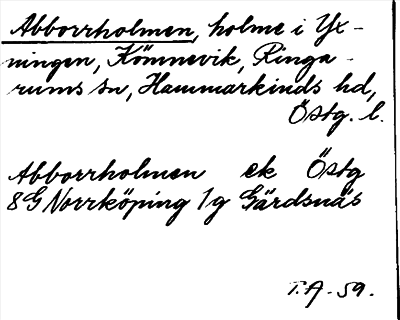 Abborrholmen, holme i Yx-
ningen, Kömnevik, Ringa-
rums sn, Hammarkinds hd,
Östg. l.
Abborrholmen ek Östg
8G Norrköping 1g Gärdsnäs
T.A. - 59.